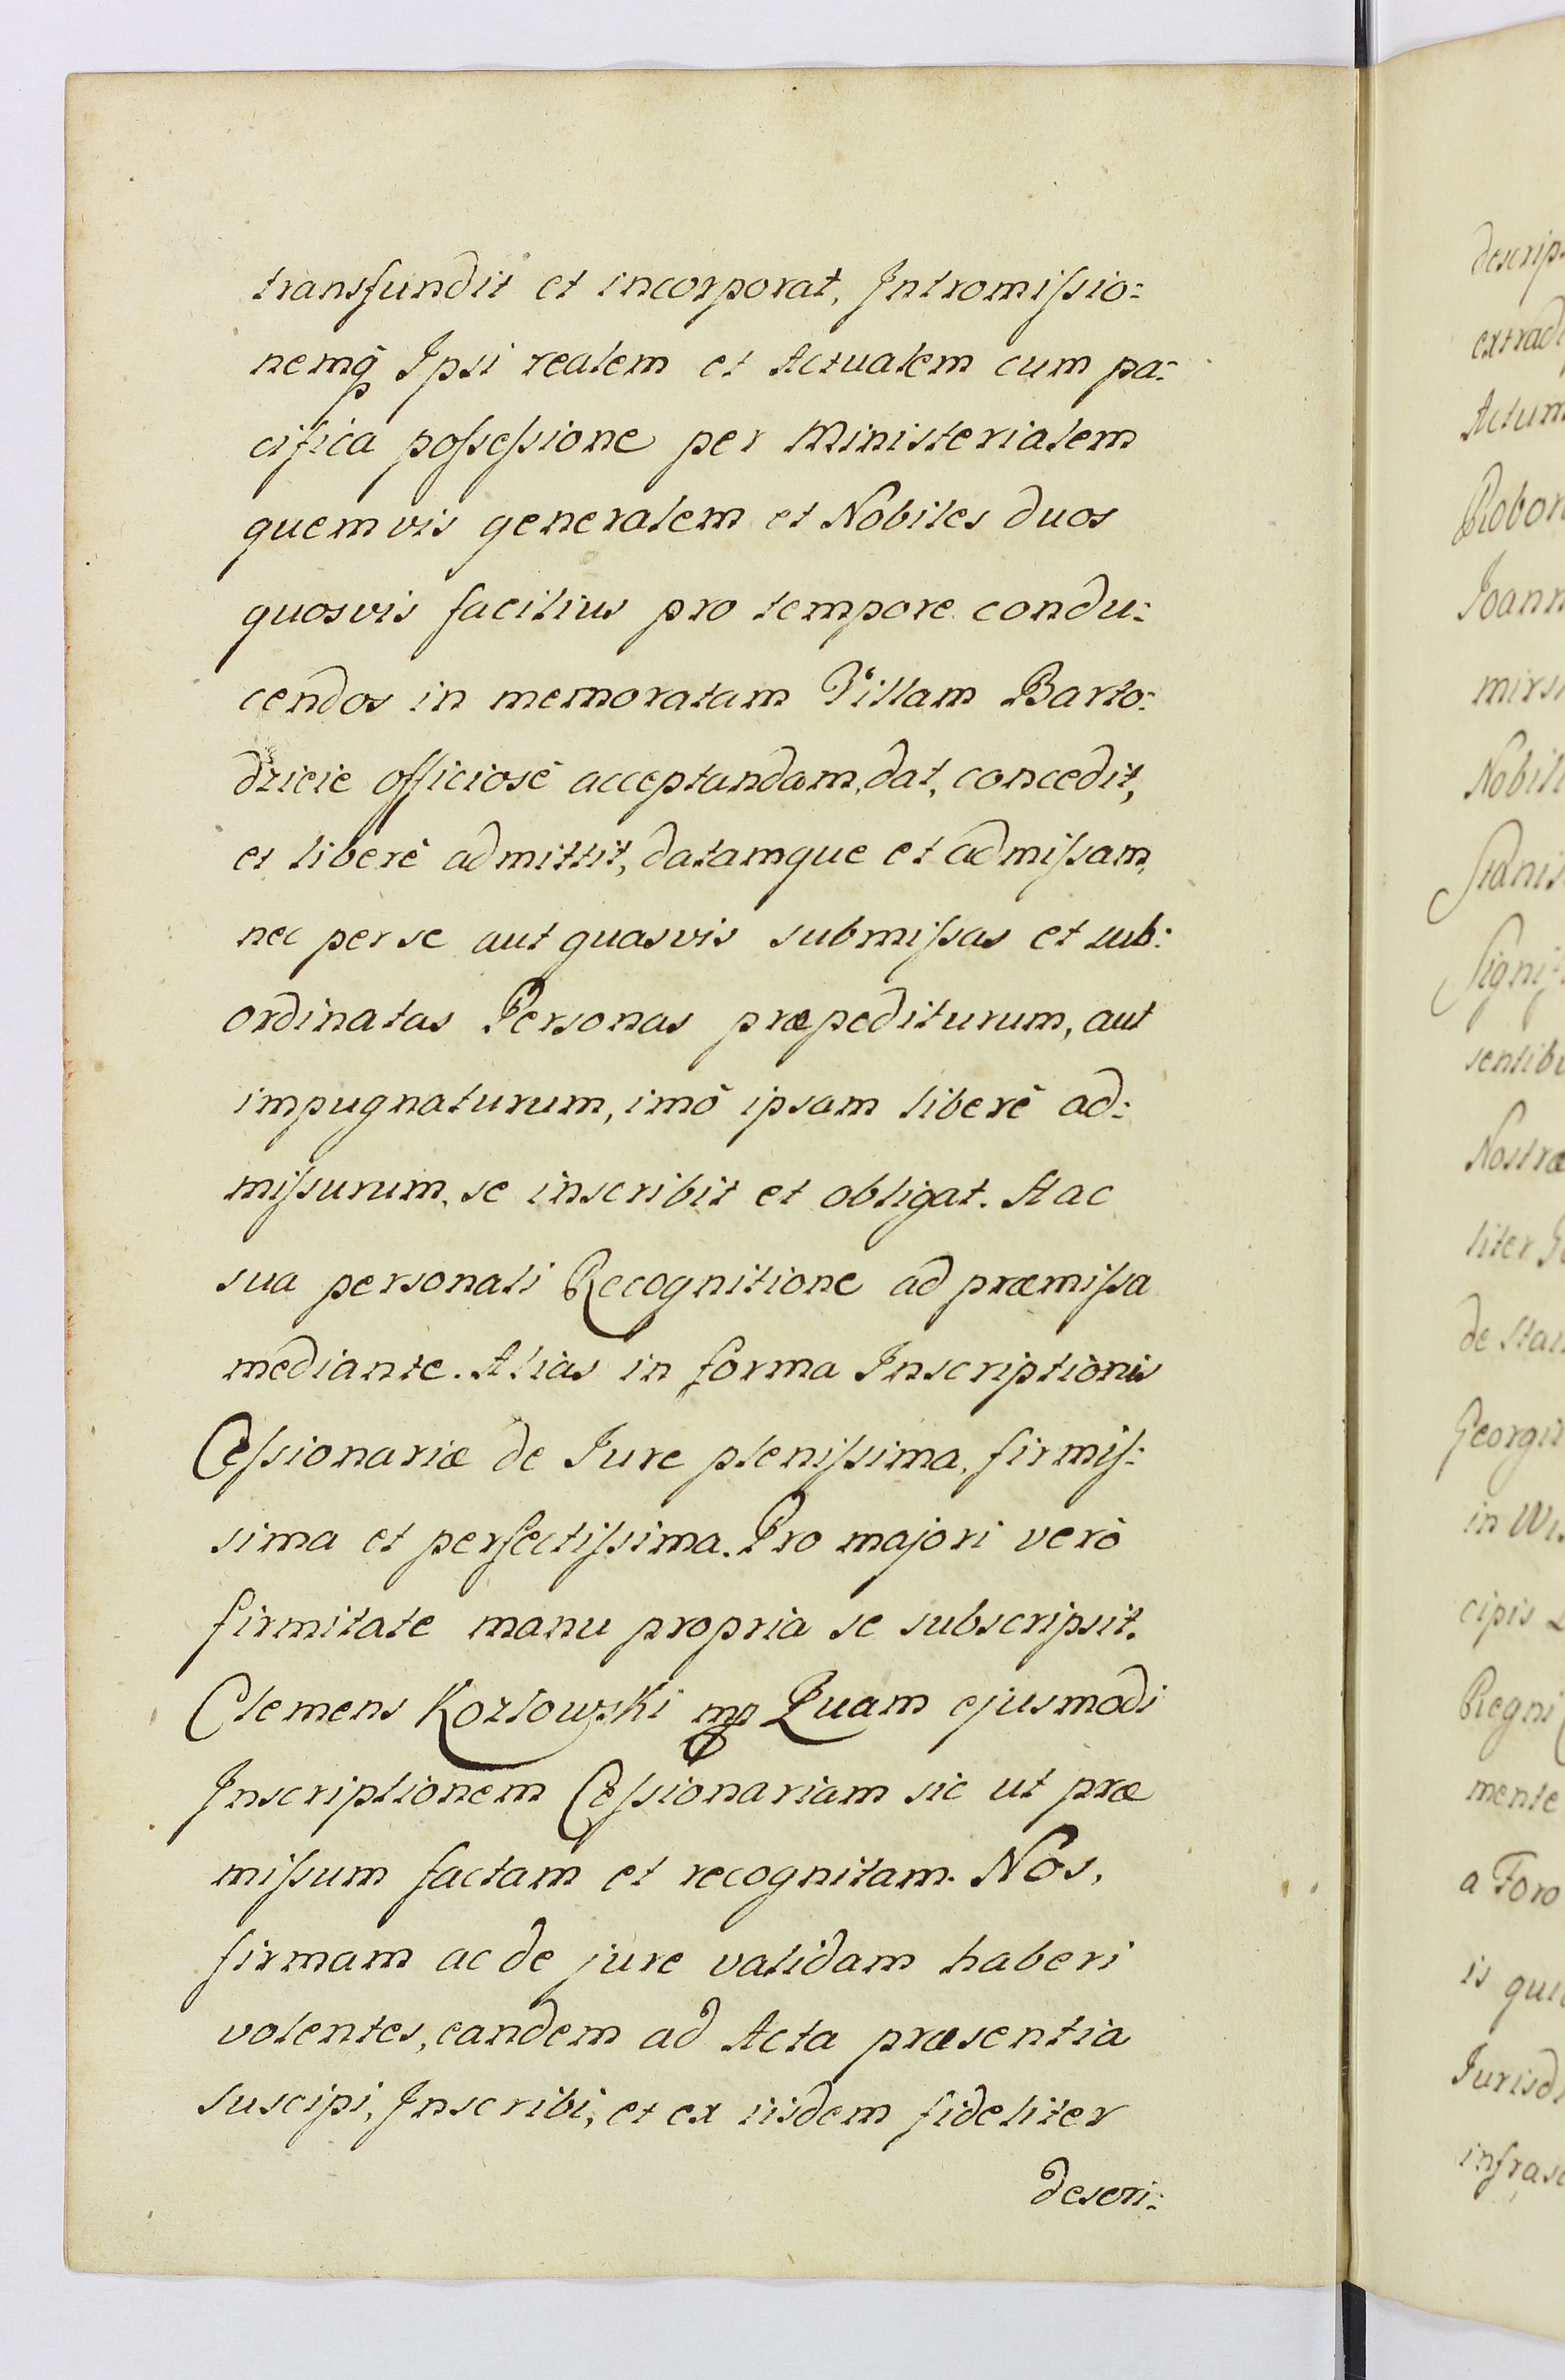 transfundit et incorporat, Intromiſsio:
nemq̃ Ipsi realem et Actualem cum pa:
cifica poſseſsione per Ministerialem
quemvis generalem et Nobiles duos
quosvis facilius pro tempore condu:
cendos in memoratam Villam Barto:
dzieie officiosè acceptandam, dat, concedit,
et liberè admittit, datamque et admiſsam,
nec per se aut quasvis submiſsas et sub:
ordinatas Personas præpediturum, aut
impugnaturum, imò ipsam liberè ad:
miſsurum, se inscribit et obligat. Hac
sua personali Recognitione ad præmiſsa
mediante. Alias in forma Inscriptionis
Ceſsionariæ de Jure pleniſsima, firmiſ:
sima et perfectiſsima. Pro majori verò
firmitate manu propria se subscripsit.
Clemens Kozlowski mp Quam ejusmodi
Inscriptionem Ceſsionariam sic ut præ
miſsum factam et recognitam. Nos,
firmam ac de jure validam haberi
volentes, eandem ad Acta præsentia
suscipi, Inscribi, et ex iisdem fideliter
descri:
descrip
extrad
Actum
Robor
Joann
mirs
Nobili
Stanis
Signi
sentib
Nostræ
liter
de Sta
Georgi
in
cipis
Regni
mente
a Foro
is qui
Jurisd
infras